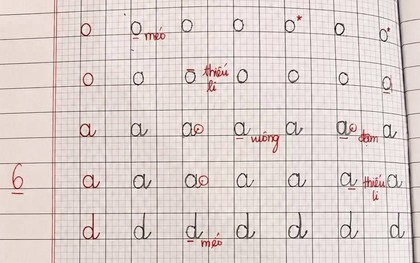 o o méo o o o* o o*
o o o thiếu li o o o o
a a ao a vuông a ao đậm a
6 a a ao a a a thiếu li a
d d d méo d d d d